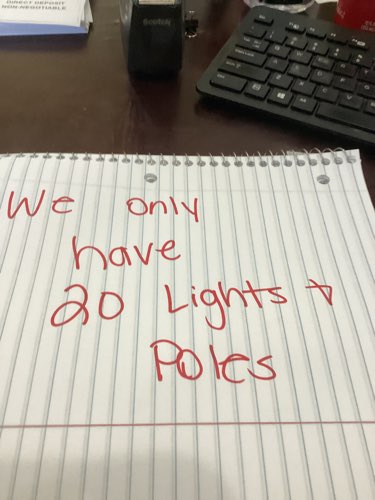 DIRECT DEPOSIT
NON-NEGOTIABLE
Scotch
We only
have
20 Lights +
Poles